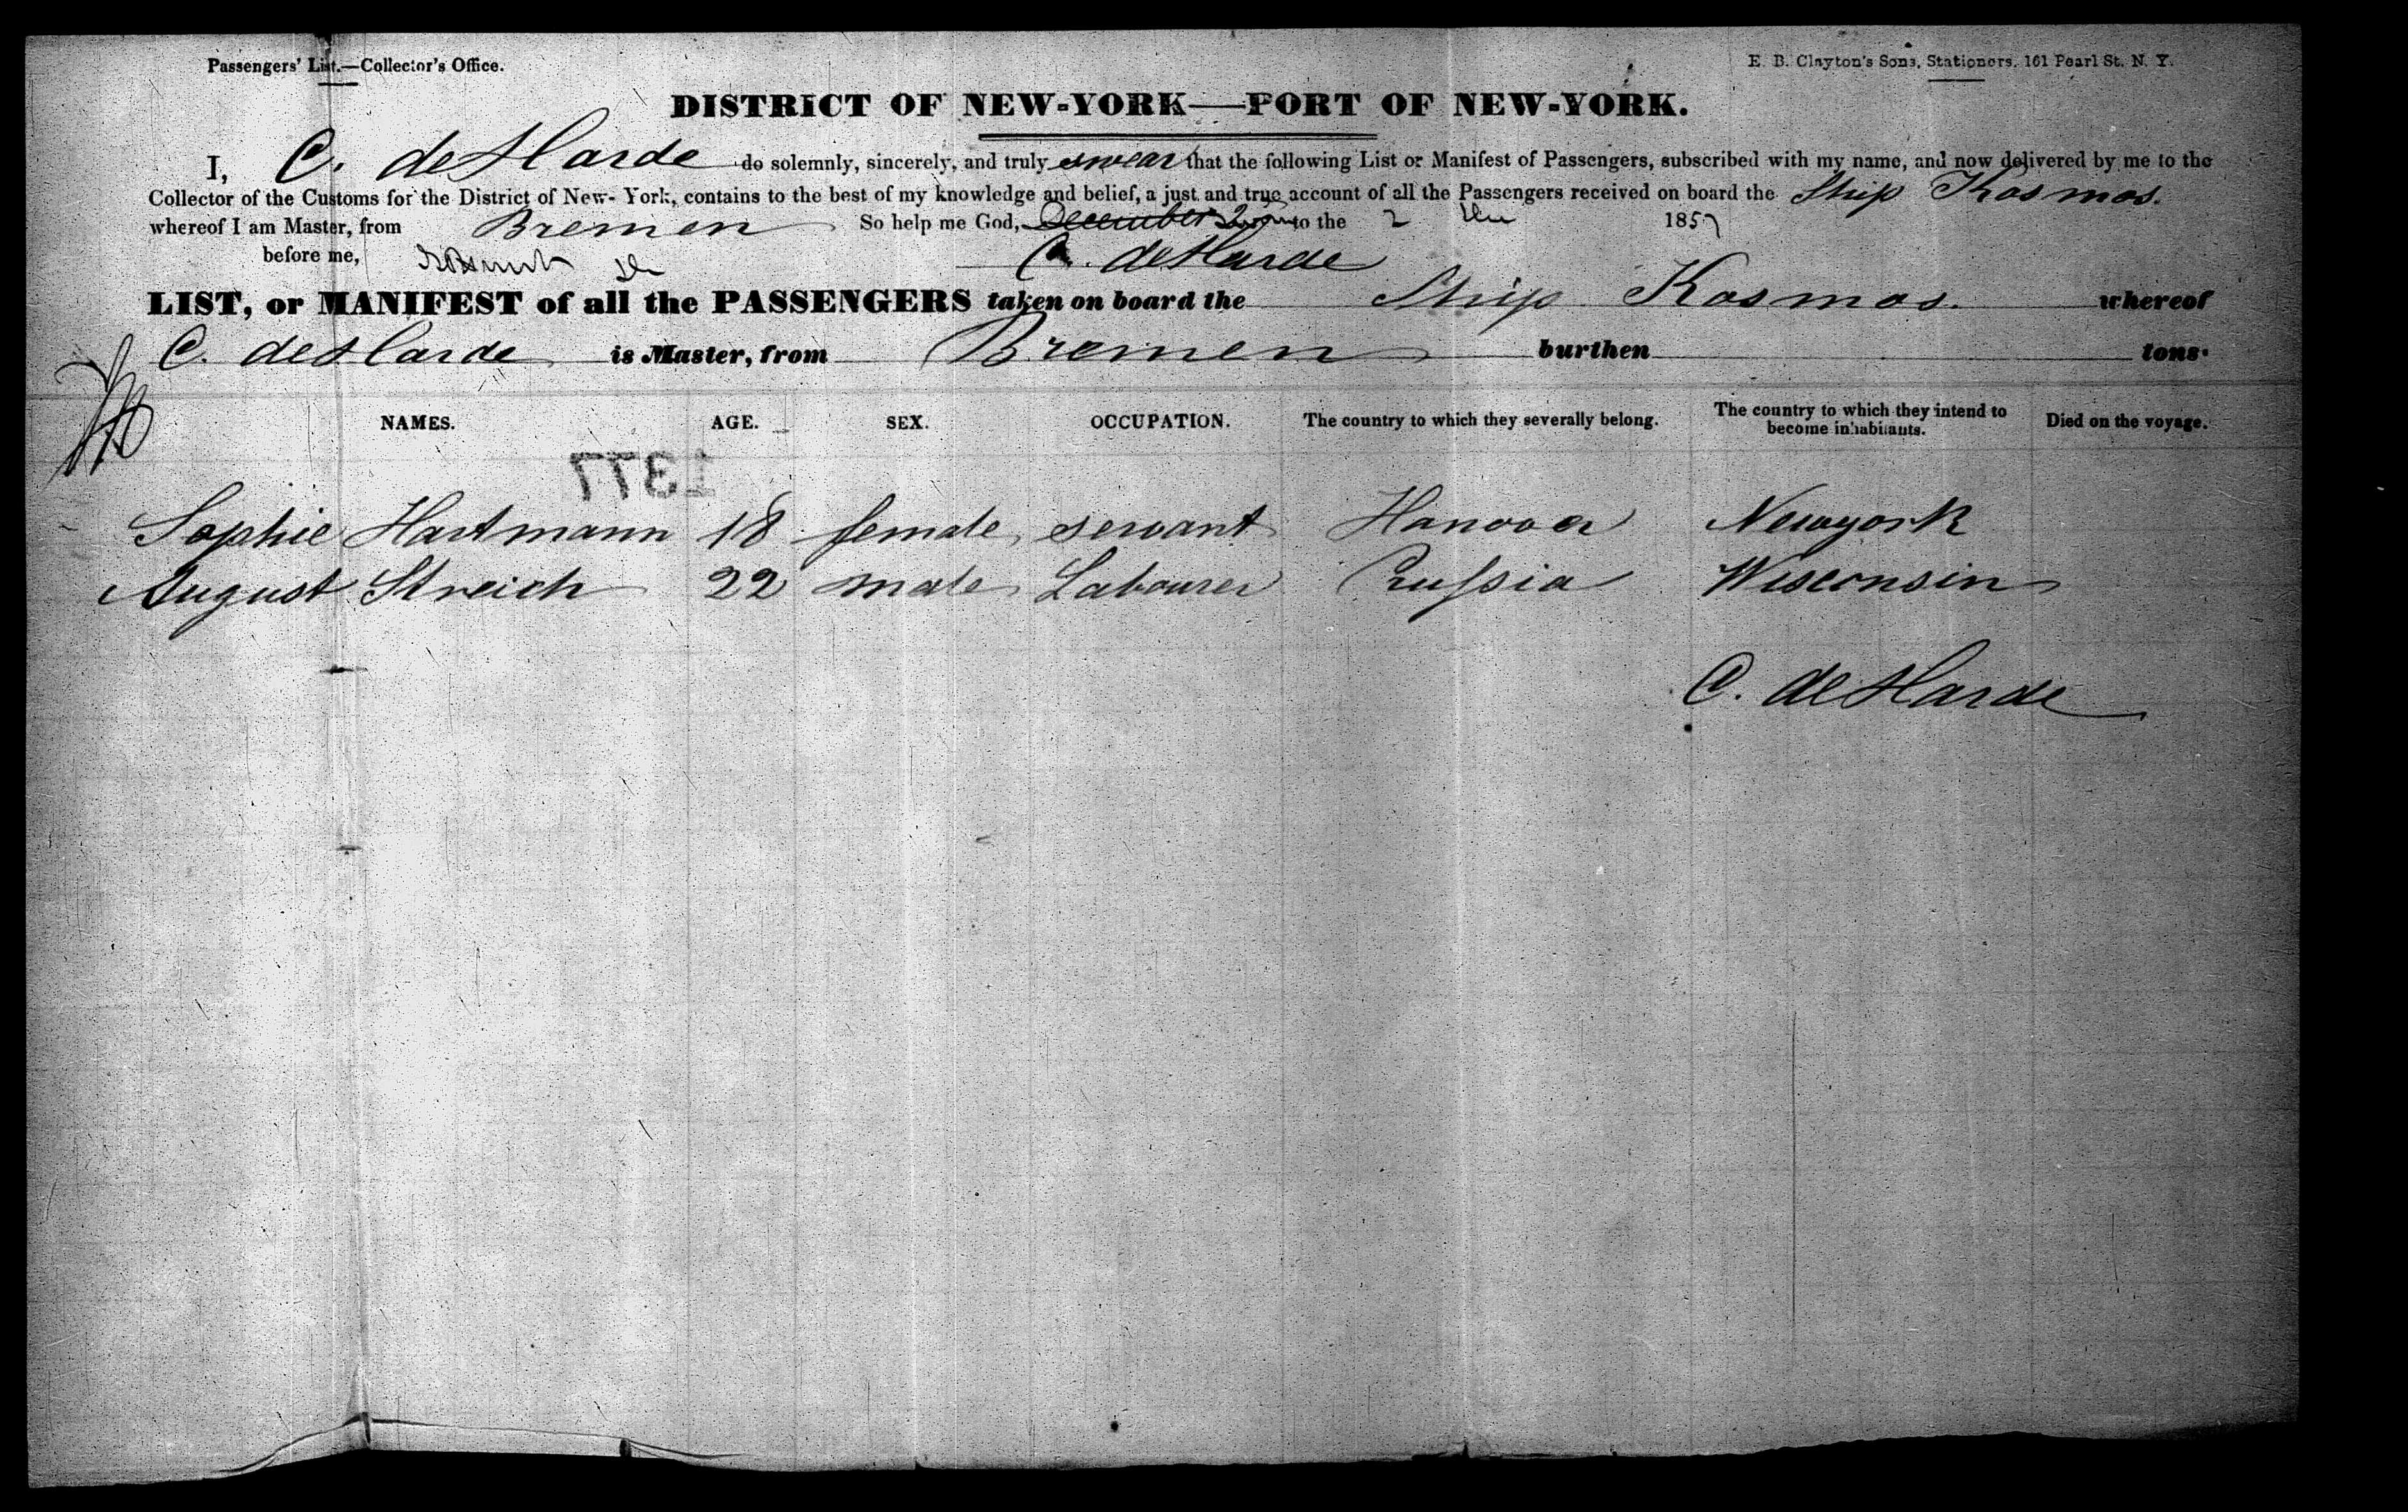 Passengers' List.—Collector's Office.
E. B. Clayton's Sons, Stationers, 161 Pearl St. N. Y.
DISTRICT OF NEW-YORK—PORT OF NEW-YORK.
I, C. deHarde do solemnly, sincerely, and truly swear that the following List or Manifest of Passengers, subscribed with my name, and now delivered by me to the
Collector of the Customs for the District of New- York, contains to the best of my knowledge and belief, a just and true account of all the Passengers received on board the Ship Kosmos.
whereof I am Master, from Bremen So help me God, December 2 Sworn to the 2 1857
before me, C. deHarde
LIST, or MANIFEST of all the PASSENGERS taken on board the Ship Kosmos. whereof
C. deHarde is Master, from Bremen burthen tons.
NAMES. AGE. SEX. OCCUPATION. The country to which they severally belong. The country to which they intend to become inhabitants. Died on the voyage.
1377
Sophie Hartmann 18 female servant Hanover Newyork
August Streich 22 male Labourer Prussia Wisconsin
C. deHarde